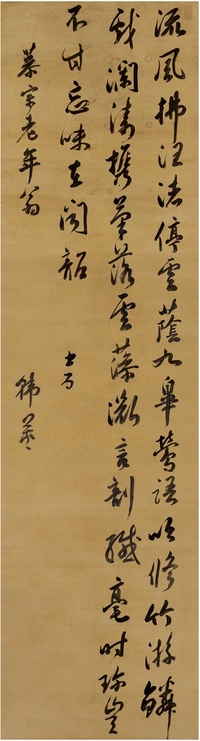 流風拂汪渚停雲蔭九皋鶯語吹修竹游鱗
戲瀾濤攜筆落雲藻微言剖纖毫時珍豈
不甘忘味在聞韶
書為
慕宗老年翁
韓菼